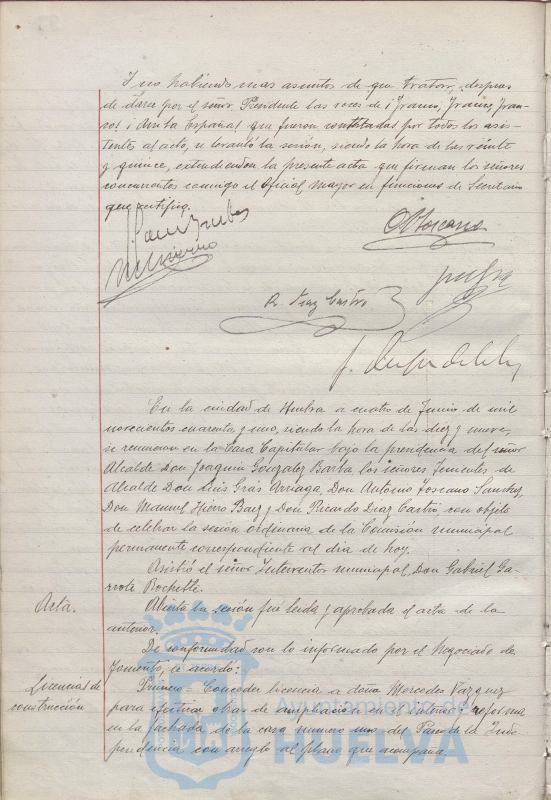 Y no habiendo mas asuntos de que tratar, despues
de darse por el señor Presidente las voces de ¡Franco, Franco, Fran-
co! ¡Arriba España! que fueron contestadas por todos los asis-
tentes al acto, se levantó la sesión, siendo la hora de las veinte
y quince, extendiendose la presente acta que firman los señores
concurrentes conmigo el Oficial Mayor en funciones de Secretario
que certifico.
A Toscano
R. Diaz Castro
En la ciudad de Huelva a cuatro de Junio de mil
novecientos cuarenta y uno, siendo la hora de las diez y nueve,
se reunieron en la Casa Capitular bajo la presidencia del señor
Alcalde Don Joaquin Gonzalez Barba los señores Tenientes de
Alcalde Don Luis Gras Arriaga, Don Antonio Toscano Sanchez,
Don Manuel Hierro Baez y Don Ricardo Diaz Castro con objeto
de celebrar la sesión ordinaria de la Comisión municipal
permanente correspondiente al dia de hoy.
Asistió el señor Interventor municipal, Don Gabriel Ga-
rrote
Acta.
Abierta la sesión fué leida y aprobada el acta de la
anterior.
De conformidad con lo informado por el Negociado de
Fomento, se acordó:
Licencias de
construcción
Primero - Conceder licencia a doña Mercedes Vazquez
para efectuar obras de ampliacion en el y reforma
en la fachada de la casa numero uno del Paseo de la Inde-
pendencia con arreglo al plano que acompaña.
Ayuntamiento de
HUELVA